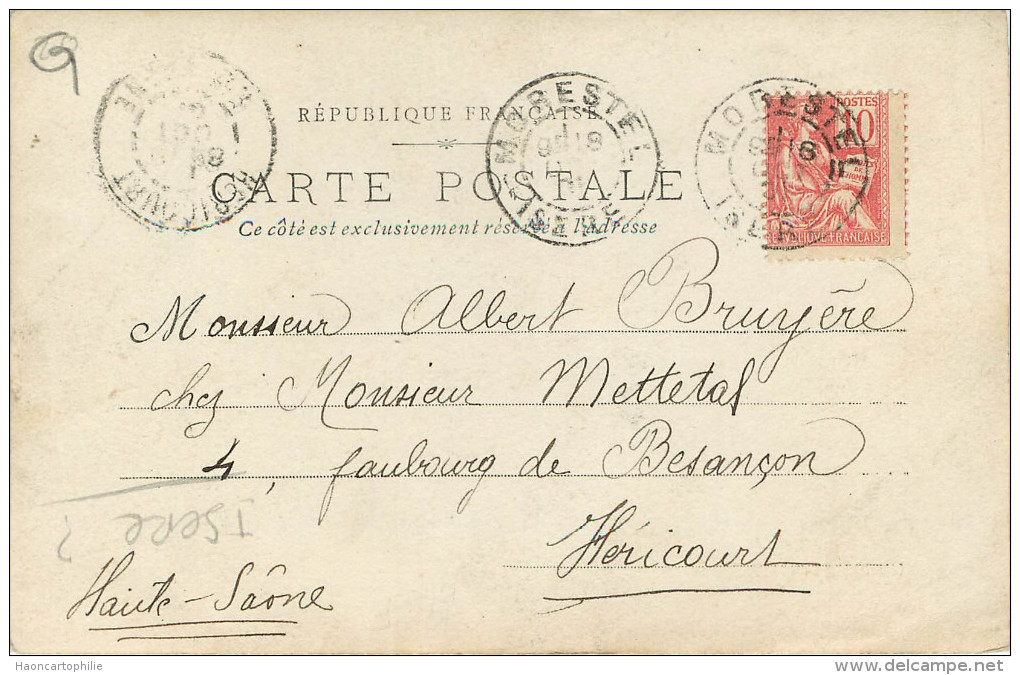 RÉPUBLIQUE FRANÇAISE
CARTE POSTALE
Ce côté est exclusivement réservé à l'adresse
MORESTEL
ISERE
MORESTEL
ISERE
HERICOURT
POSTES
10
REPUBLIQUE FRANÇAISE
Monsieur Albert Bruyère
chez Monsieur Mettetal
4, faubourg de Besançon
Héricourt
Haute-Saône
ISERE
?
Haoncartophilie
www.delcampe.net